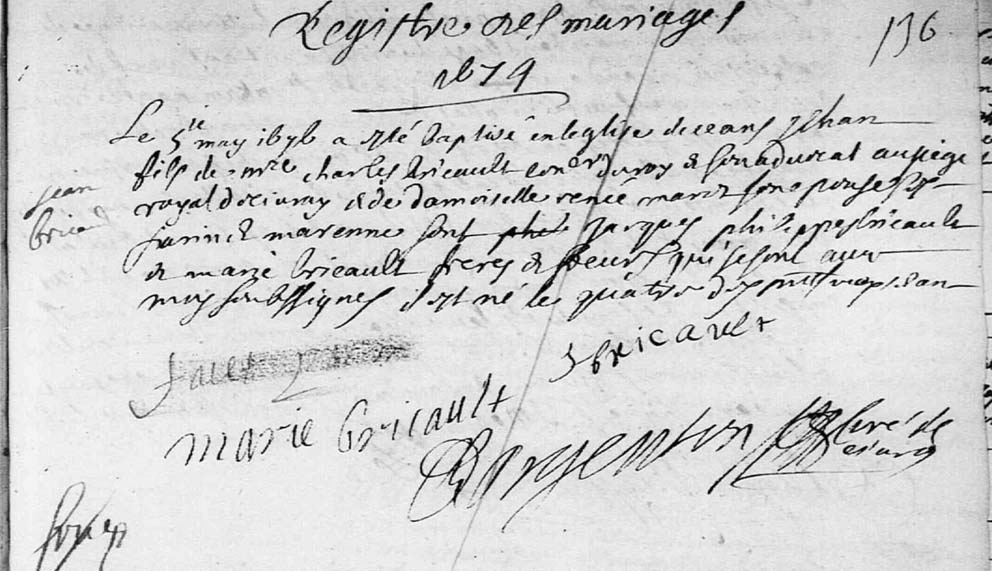 Registre des mariages
136
1674
Le 5te may 1676 a esté baptisé en leglise de ceans Jehan
fils de mre Charles bricault conr du roy & son advocat au siege
jean
royal de civray & de damoiselle renée son espouse
bricau
& marenne sont Jacques philippes bricault
& marie bricault freres & soeurs qui se sont avec
moy soubssignes il est né le quatre des
J bricault
marie bricault
Dorgenton curé de
civray